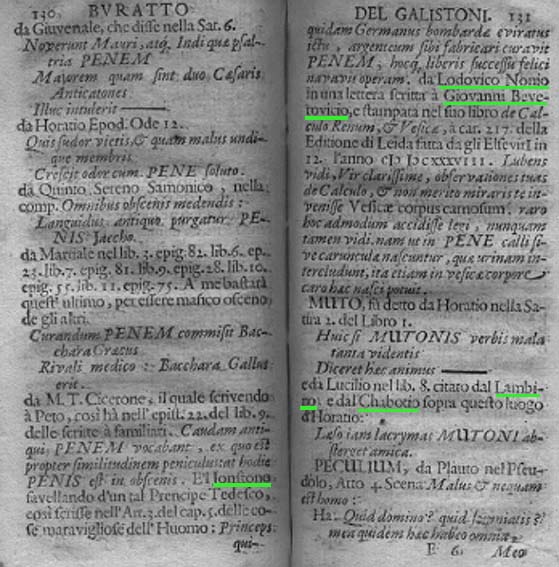 130 BVRATTO
da Giuvenale, che disse nella Sat. 6.
Noverunt Mauri, atq; Indi quæ psal-
tria PENEM
Majorem quam sint duo Cæsaris
Anticatones
Illuc intulerit ———
da Horatio Epod. Ode 12.
Quis sudor victis, & quam malus undi-
que membris
Crescit odor cum PENE soluto.
da Quinto Sereno Samonico, nella
comp. Omnibus obscenis medendis:
Languidus antiquo purgatur PE-
NIS Iaccho.
da Martiale nel lib. 3. epig. 82. lib. 6. ep.
23. lib. 7. epig. 81. lib. 9. epig. 28. lib. 10.
epig. 55. lib. 11. epig. 75. A me bastarà
quest' ultimo, per essere masico osceno
de gli altri.
Curandum PENEM commisit Bac-
chara Græcus
Rivali medico: Bacchara Gallus
erit.
da M. T. Cicerone, il quale scrivendo
à Peto, così hà nell' epist. 22. del lib. 9.
delle scritte à familiari. Caudam anti-
qui PENEM vocabant, ex quo est
propter similitudinem peniculus: at hodie
PENIS est in obscenis. E'l Ionstono
favellando d'un tal Prencipe Tedesco,
così scrisse nell' Art. 3. del cap. 5. delle co-
se maravigliose dell' Huomo: Princeps
qui-
DEL GALISTONI. 131
quidam Germanus bombardæ eviratus
ictu, argenteum sibi fabricari curavit
PENEM, hocq; liberis successu felici
navavit operam. da Lodovico Nonio
in una lettera scritta à Giovanni Beve-
rovicio, e stampata nel suo libro de Cal-
culo Renum, & Vesicæ, à car. 217. della
Editione di Leida fatta da gli Elsevirî in
12. l'anno cIɔ Iɔ cxxxviii. Lubens
vidi, Vir clarissime, observationes tuas
de Calculo, & non merito miraris te in-
venisse Vesicæ corpus carnosum. raro
hoc admodum accidisse legi, nunquam
tamen vidi. nam ut in PENE calli si-
ve carunculæ nascuntur, quæ urinam in-
tercludunt, ita etiam in vesicæ corpore
caro hæc nasci potuit.
MUTO, fù detto da Horatio nella Sa-
tira 2. del Libro 1.
Huic si MUTONIS verbis mala
tanta videntis
Diceret hæc animus ———
e da Lucilio nel lib. 8. citato dal Lambi-
no, e dal Chabotio sopra questo luogo
d'Horatio:
Læso iam lacrymas MUTONI ab-
sterget amica.
PECULIUM, da Plauto nel Pseu-
dolo, Atto 4. Scena Malus & nequam
est homo:
Ha. Quid domino? quid somniatis?
mea quidem hæc habeo omnia
F 6 Meo